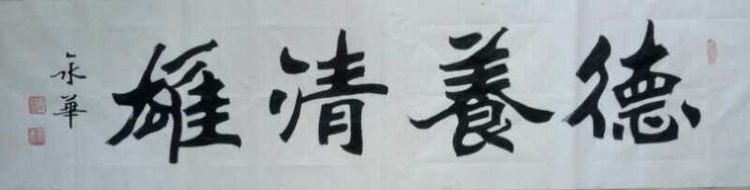 德養清雄
永華